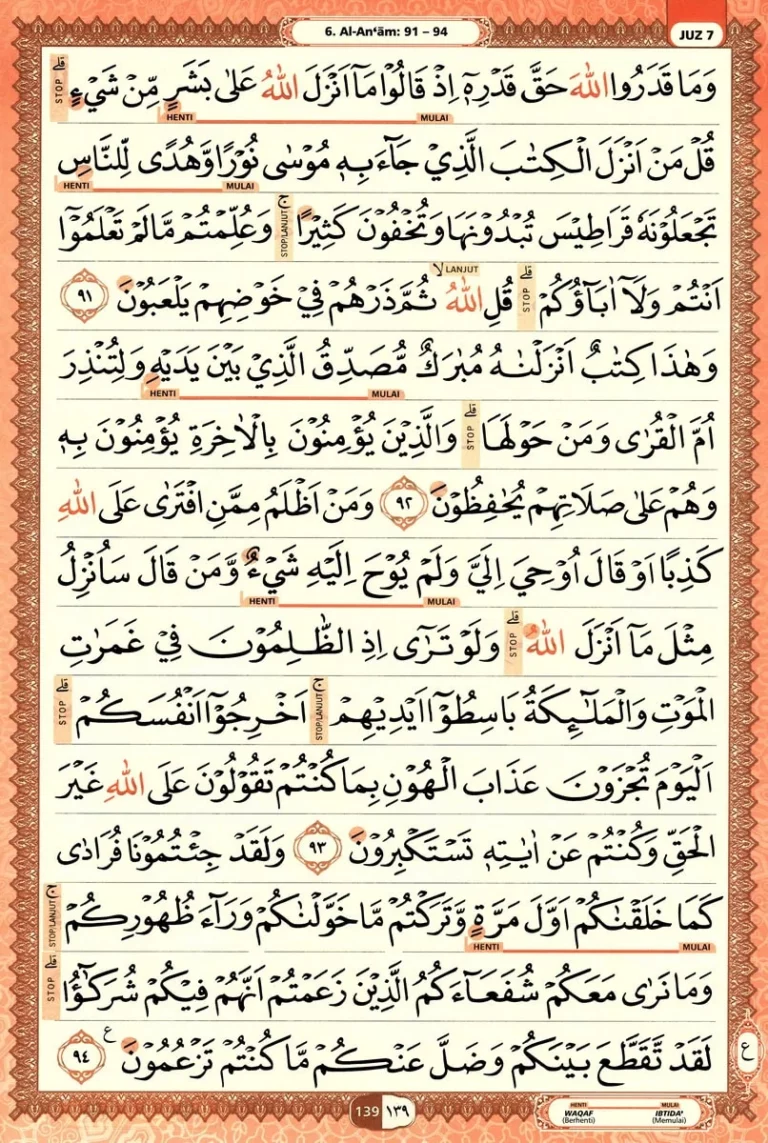 6. Al-An‘ām: 91 – 94
JUZ 7
وَمَا قَدَرُوا اللّٰهَ حَقَّ قَدْرِهٖٓ اِذْ قَالُوْا مَآ اَنْزَلَ اللّٰهُ عَلٰى بَشَرٍ مِّنْ شَيْءٍۗ STOP
HENTI MULAI
قُلْ مَنْ اَنْزَلَ الْكِتٰبَ الَّذِيْ جَاۤءَ بِهٖ مُوْسٰى نُوْرًا وَّهُدًى لِّلنَّاسِ
HENTI MULAI
تَجْعَلُوْنَهٗ قَرَاطِيْسَ تُبْدُوْنَهَا وَتُخْفُوْنَ كَثِيْرًاۚ STOP/LANJUT وَعُلِّمْتُمْ مَّا لَمْ تَعْلَمُوْٓا
اَنْتُمْ وَلَآ اٰبَاۤؤُكُمْۗ STOP قُلِ اللّٰهُۙ LANJUT ثُمَّ ذَرْهُمْ فِيْ خَوْضِهِمْ يَلْعَبُوْنَ ٩١
وَهٰذَا كِتٰبٌ اَنْزَلْنٰهُ مُبٰرَكٌ مُّصَدِّقُ الَّذِيْ بَيْنَ يَدَيْهِ وَلِتُنْذِرَ
HENTI MULAI
اُمَّ الْقُرٰى وَمَنْ حَوْلَهَاۗ STOP وَالَّذِيْنَ يُؤْمِنُوْنَ بِالْاٰخِرَةِ يُؤْمِنُوْنَ بِهٖ
وَهُمْ عَلٰى صَلَاتِهِمْ يُحٰفِظُوْنَ ٩٢ وَمَنْ اَظْلَمُ مِمَّنِ افْتَرٰى عَلَى اللّٰهِ
كَذِبًا اَوْ قَالَ اُوْحِيَ اِلَيَّ وَلَمْ يُوْحَ اِلَيْهِ شَيْءٌ وَّمَنْ قَالَ سَاُنْزِلُ
HENTI MULAI
مِثْلَ مَآ اَنْزَلَ اللّٰهُۗ STOP وَلَوْ تَرٰٓى اِذِ الظّٰلِمُوْنَ فِيْ غَمَرٰتِ
الْمَوْتِ وَالْمَلٰۤىِٕكَةُ بَاسِطُوْٓا اَيْدِيْهِمْۚ STOP/LANJUT اَخْرِجُوْٓا اَنْفُسَكُمْۗ STOP
اَلْيَوْمَ تُجْزَوْنَ عَذَابَ الْهُوْنِ بِمَا كُنْتُمْ تَقُوْلُوْنَ عَلَى اللّٰهِ غَيْرَ
الْحَقِّ وَكُنْتُمْ عَنْ اٰيٰتِهٖ تَسْتَكْبِرُوْنَ ٩٣ وَلَقَدْ جِئْتُمُوْنَا فُرَادٰى
كَمَا خَلَقْنٰكُمْ اَوَّلَ مَرَّةٍ وَّتَرَكْتُمْ مَّا خَوَّلْنٰكُمْ وَرَاۤءَ ظُهُوْرِكُمْۚ STOP/LANJUT
HENTI MULAI
وَمَا نَرٰى مَعَكُمْ شُفَعَاۤءَكُمُ الَّذِيْنَ زَعَمْتُمْ اَنَّهُمْ فِيْكُمْ شُرَكٰۤؤُاۗ STOP
لَقَدْ تَّقَطَّعَ بَيْنَكُمْ وَضَلَّ عَنْكُمْ مَّا كُنْتُمْ تَزْعُمُوْنَ ࣖ ٩٤
ع
139 ١٣٩
HENTI MULAI
WAQAF IBTIDA'
(Berhenti) (Memulai)